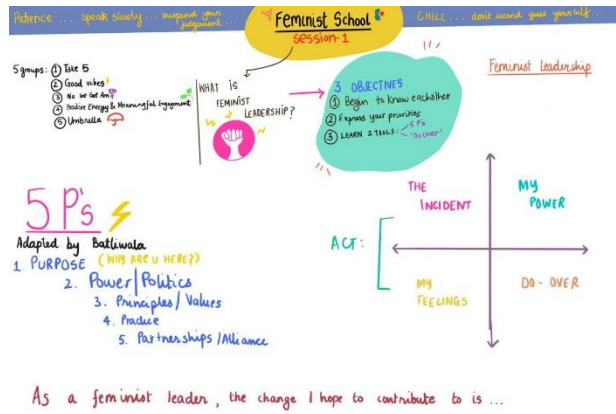 Patience ... speak slowly ... suspend your judgement ...
Feminist School
session-1
CHILL ... don't second guess yourself...
5 groups: ① Take 5
② Good vibes
③ No be Get Am
④ Positive Energy & Meaningful Engagement
⑤ Umbrella
WHAT IS
FEMINIST
LEADERSHIP?
3 OBJECTIVES
① Begin to know eachother
② Express your priorities
③ LEARN 2 TOOLS:
5 P's
"Do Over"
Feminist Leadership
5 P's
Adapted by Batliwala
1. PURPOSE (WHY ARE U HERE?)
2. Power/Politics
3. Principles/Values
4. Practice
5. Partnerships/Alliance
ACT:
THE
INCIDENT
MY
POWER
MY
FEELINGS
DO-OVER
As a feminist leader, the change I hope to contribute to is ...